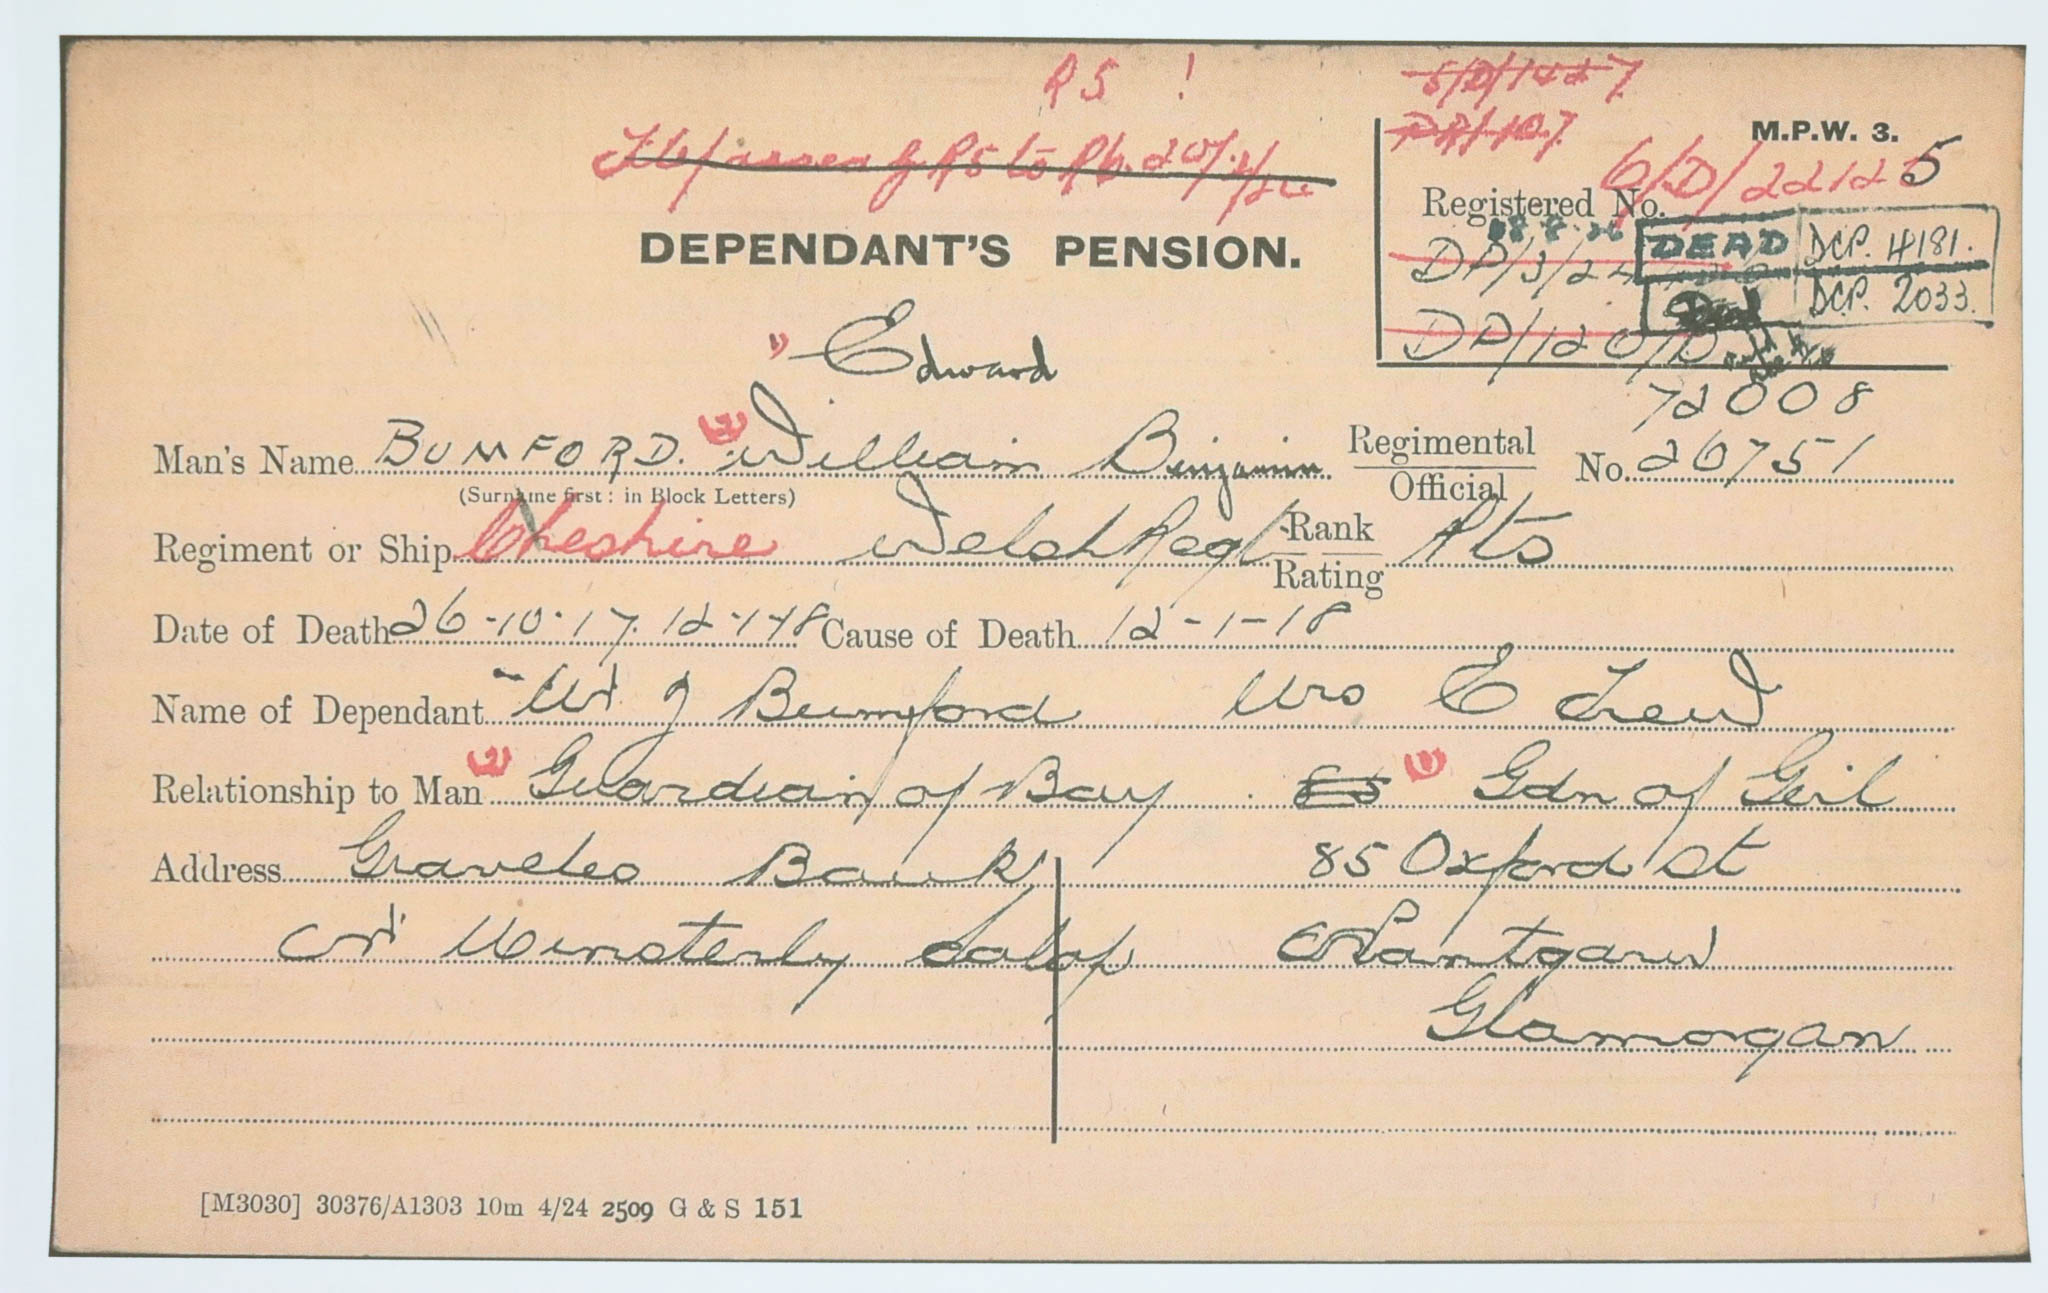 R 5 !
5/D/1427
DR/107
M.P.W. 3.
R5 to R6. 20/
6/D/22125
Registered No.
DEPENDANT'S PENSION.
8.8.26
DEAD DCP. 4181.
DP/3/24
Dead DCP. 2033.
DP/120/D
1) Edward
72008
Man's Name BUMFORD. (2) William Binjamin Regimental / Official No. 26751
(Surname first: in Block Letters)
Regiment or Ship Cheshire Welsh Regt Rank / Rating Pts
Date of Death 26-10-17. 12-1-18 Cause of Death 12-1-18
Name of Dependant Mr J Bumford Mrs E Trew
Relationship to Man (2) Guardian of Boy . 85 (1) Gdn of Girl
Address Gravels Bank 85 Oxford St
Nr Minsterly Salop Nantgarw
Glamorgan
[M3030] 30376/A1303 10m 4/24 2509 G & S 151